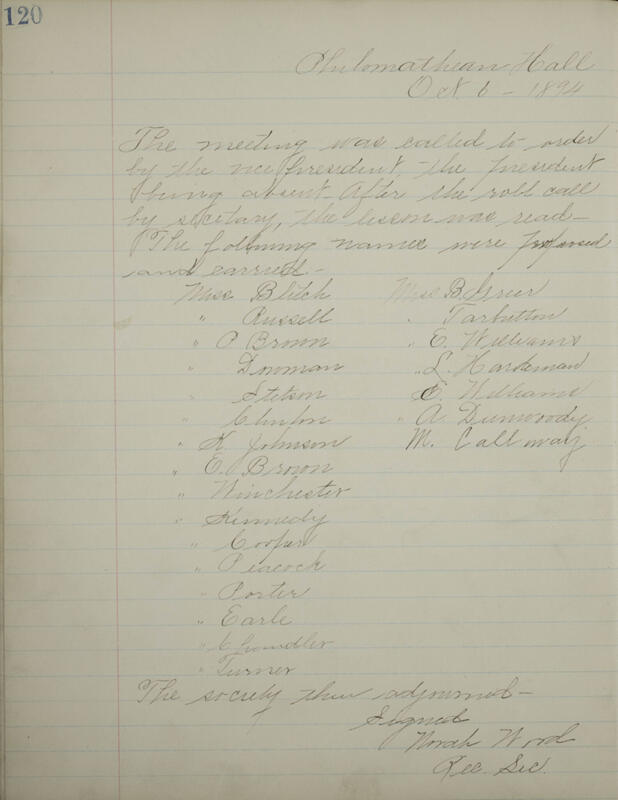 120
Philomathean Hall
Oct 6 - 1894
The meeting was called to order
by the vice president, the president
being absent. After the roll call
by secretary, the lesson was read -
The following names were proposed
and carried. -
Miss Blitch
" Russell
" P Brown
" Dowman
" Stetson
"
" K. Johnson
" E. Brown
" Winchester
" Kennedy
" Cooper
" Peacock
" Porter
" Earle
" Chandler
" Turner
Miss B. Greer
" Tarbutton
" E. Williams
" L. Hardeman
E. Williams
" A. Dunwoody
M. Callaway
The society then adjourned -
Signed
Norah Wood
Rec. Sec.